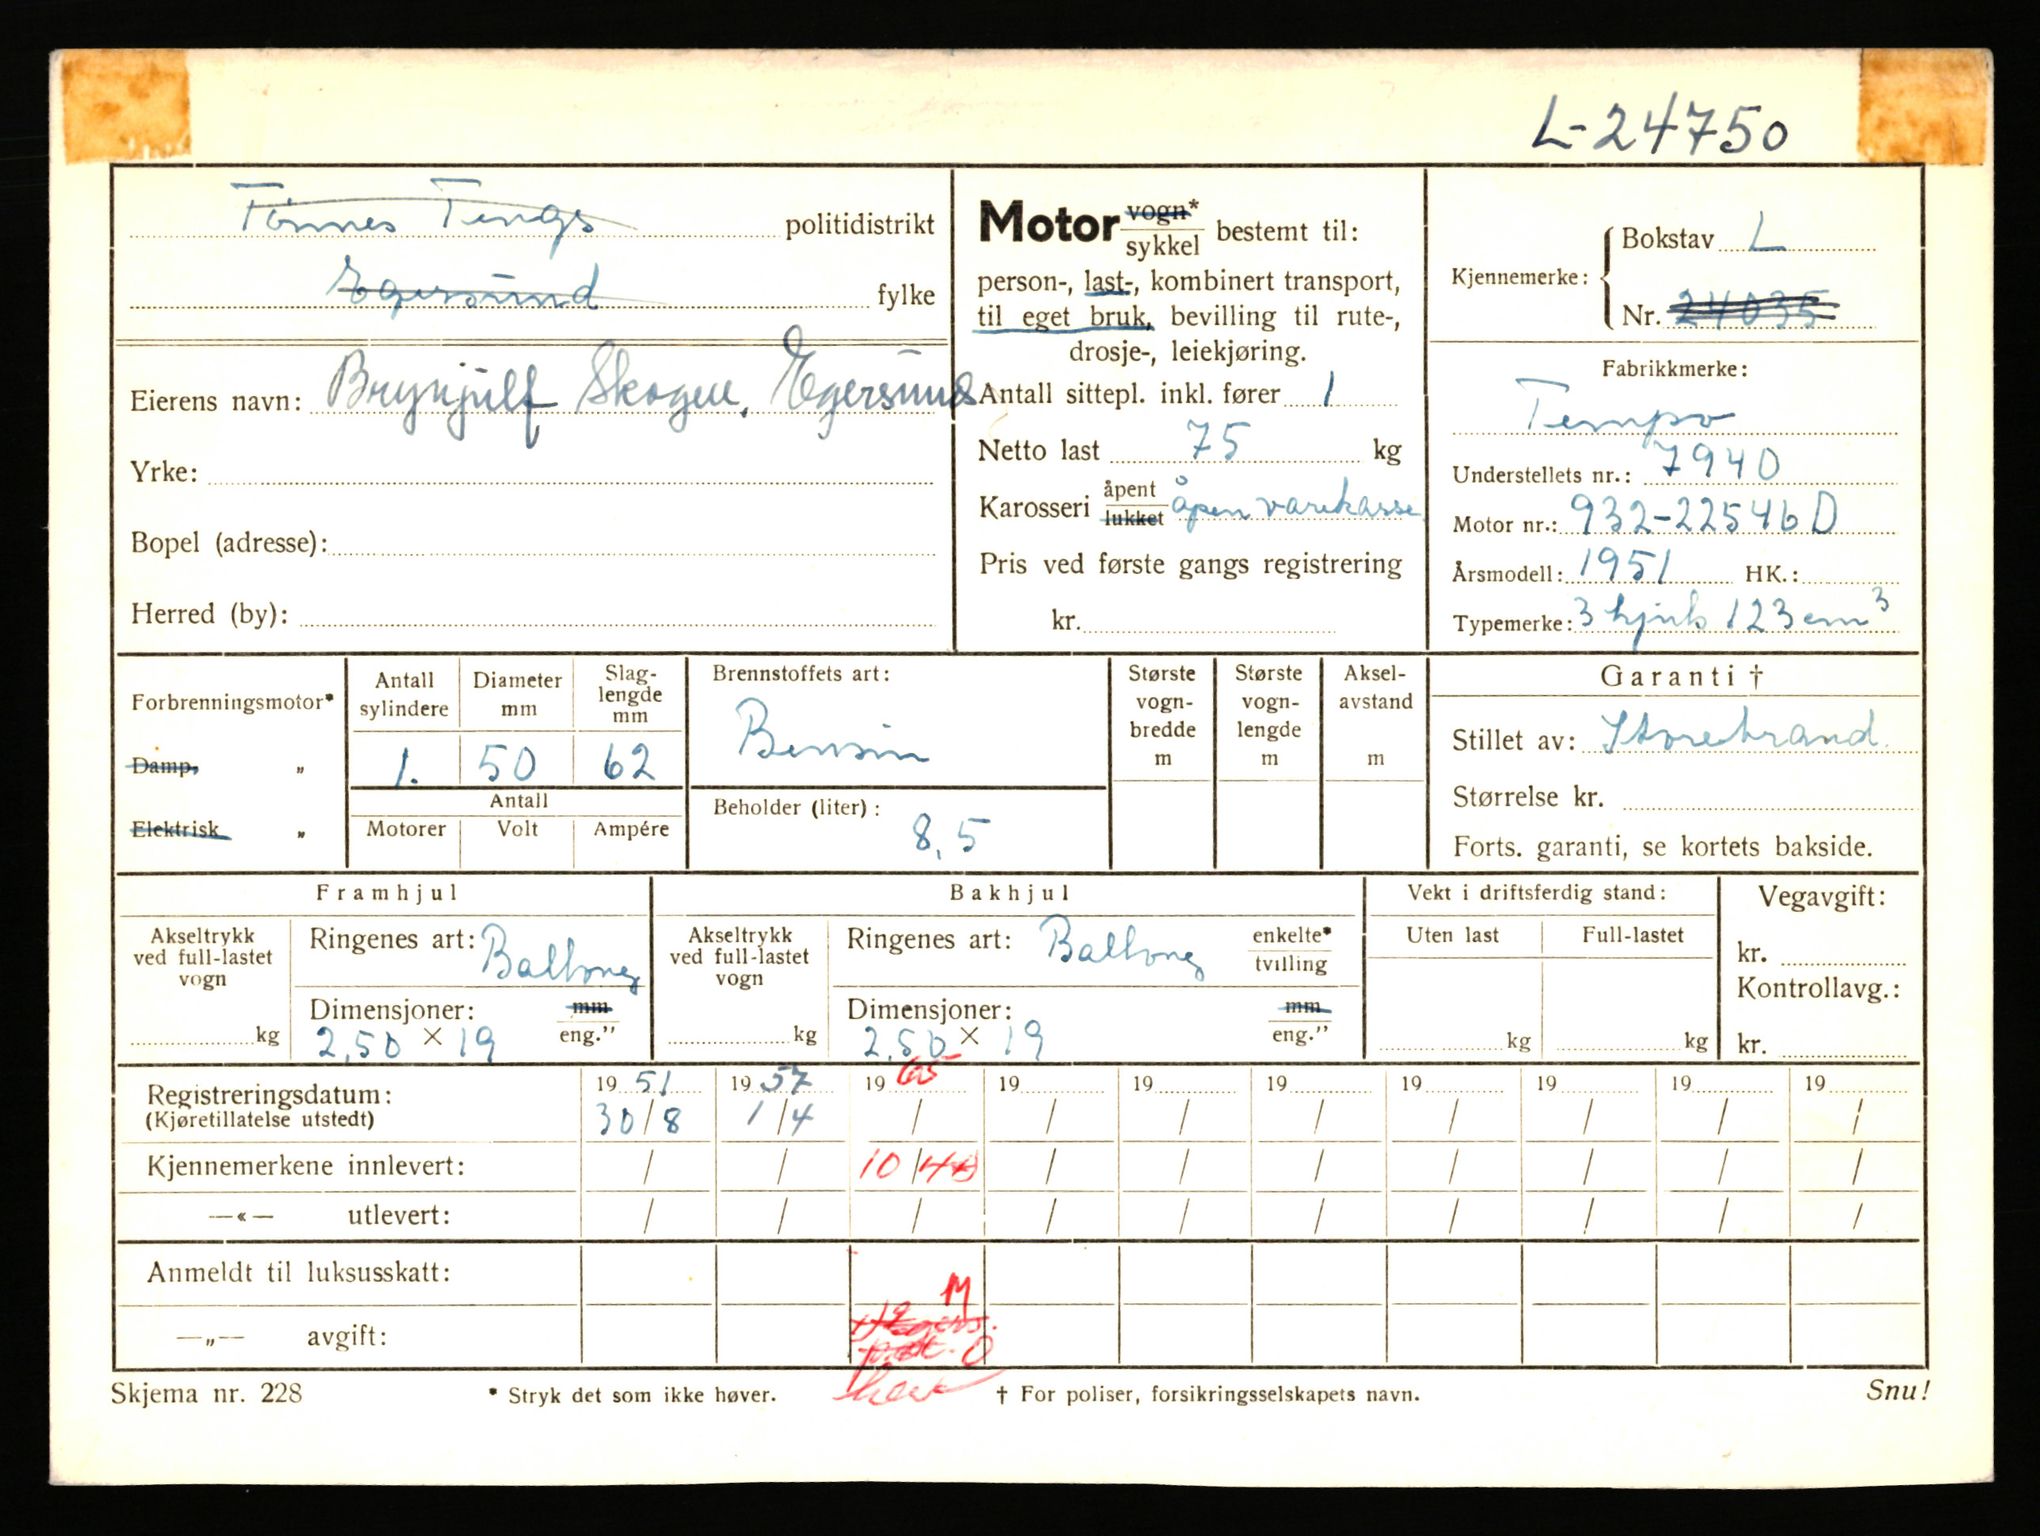 L-24750
Tønnes Tengs politidistrikt
Egersund fylke
Eierens navn: Brynjulf Skogen, Egersund
Yrke:
Bopel (adresse):
Herred (by):
Motor vogn* sykkel bestemt til:
person-, last-, kombinert transport,
til eget bruk, bevilling til rute-,
drosje-, leiekjøring.
Antall sittepl. inkl. fører 1
Netto last 75 kg
Karosseri åpent lukket åpen varekasse
Pris ved første gangs registrering
kr.
Kjennemerke: Bokstav L
Nr. 24035
Fabrikkmerke:
Tempo
Understellets nr.: 7940
Motor nr.: 932-22546D
Årsmodell: 1951 HK.:
Typemerke: 3 hjuls 123 cm³
Forbrenningsmotor*
Damp, „
Elektrisk „
Antall sylindere
1.
Diameter mm
50
Slag-lengde mm
62
Antall
Motorer Volt Ampére
Brennstoffets art:
Bensin
Beholder (liter):
8,5
Største vogn-bredde m
Største vogn-lengde m
Aksel-avstand m
Garanti †
Stillet av: Storebrand
Størrelse kr.
Forts. garanti, se kortets bakside.
Framhjul
Akseltrykk ved full-lastet vogn
kg
Ringenes art: Ballong
Dimensjoner: mm eng.”
2,50 × 19
Bakhjul
Akseltrykk ved full-lastet vogn
kg
Ringenes art: Ballong enkelte* tvilling
Dimensjoner: mm eng.”
2,50 × 19
Vekt i driftsferdig stand:
Uten last Full-lastet
kg kg
Vegavgift:
kr.
Kontrollavg.:
kr.
Registreringsdatum: 19 51 19 57 19 65 19 19 19 19 19 19 19
(Kjøretillatelse utstedt) 30/8 1/4 / / / / / / / /
Kjennemerkene innlevert: / / 10/4 / / / / / / /
—«— utlevert: / / / / / / / / / /
Anmeldt til luksusskatt:
M
—„— avgift:
Skjema nr. 228 * Stryk det som ikke høver. † For poliser, forsikringsselskapets navn. Snu!